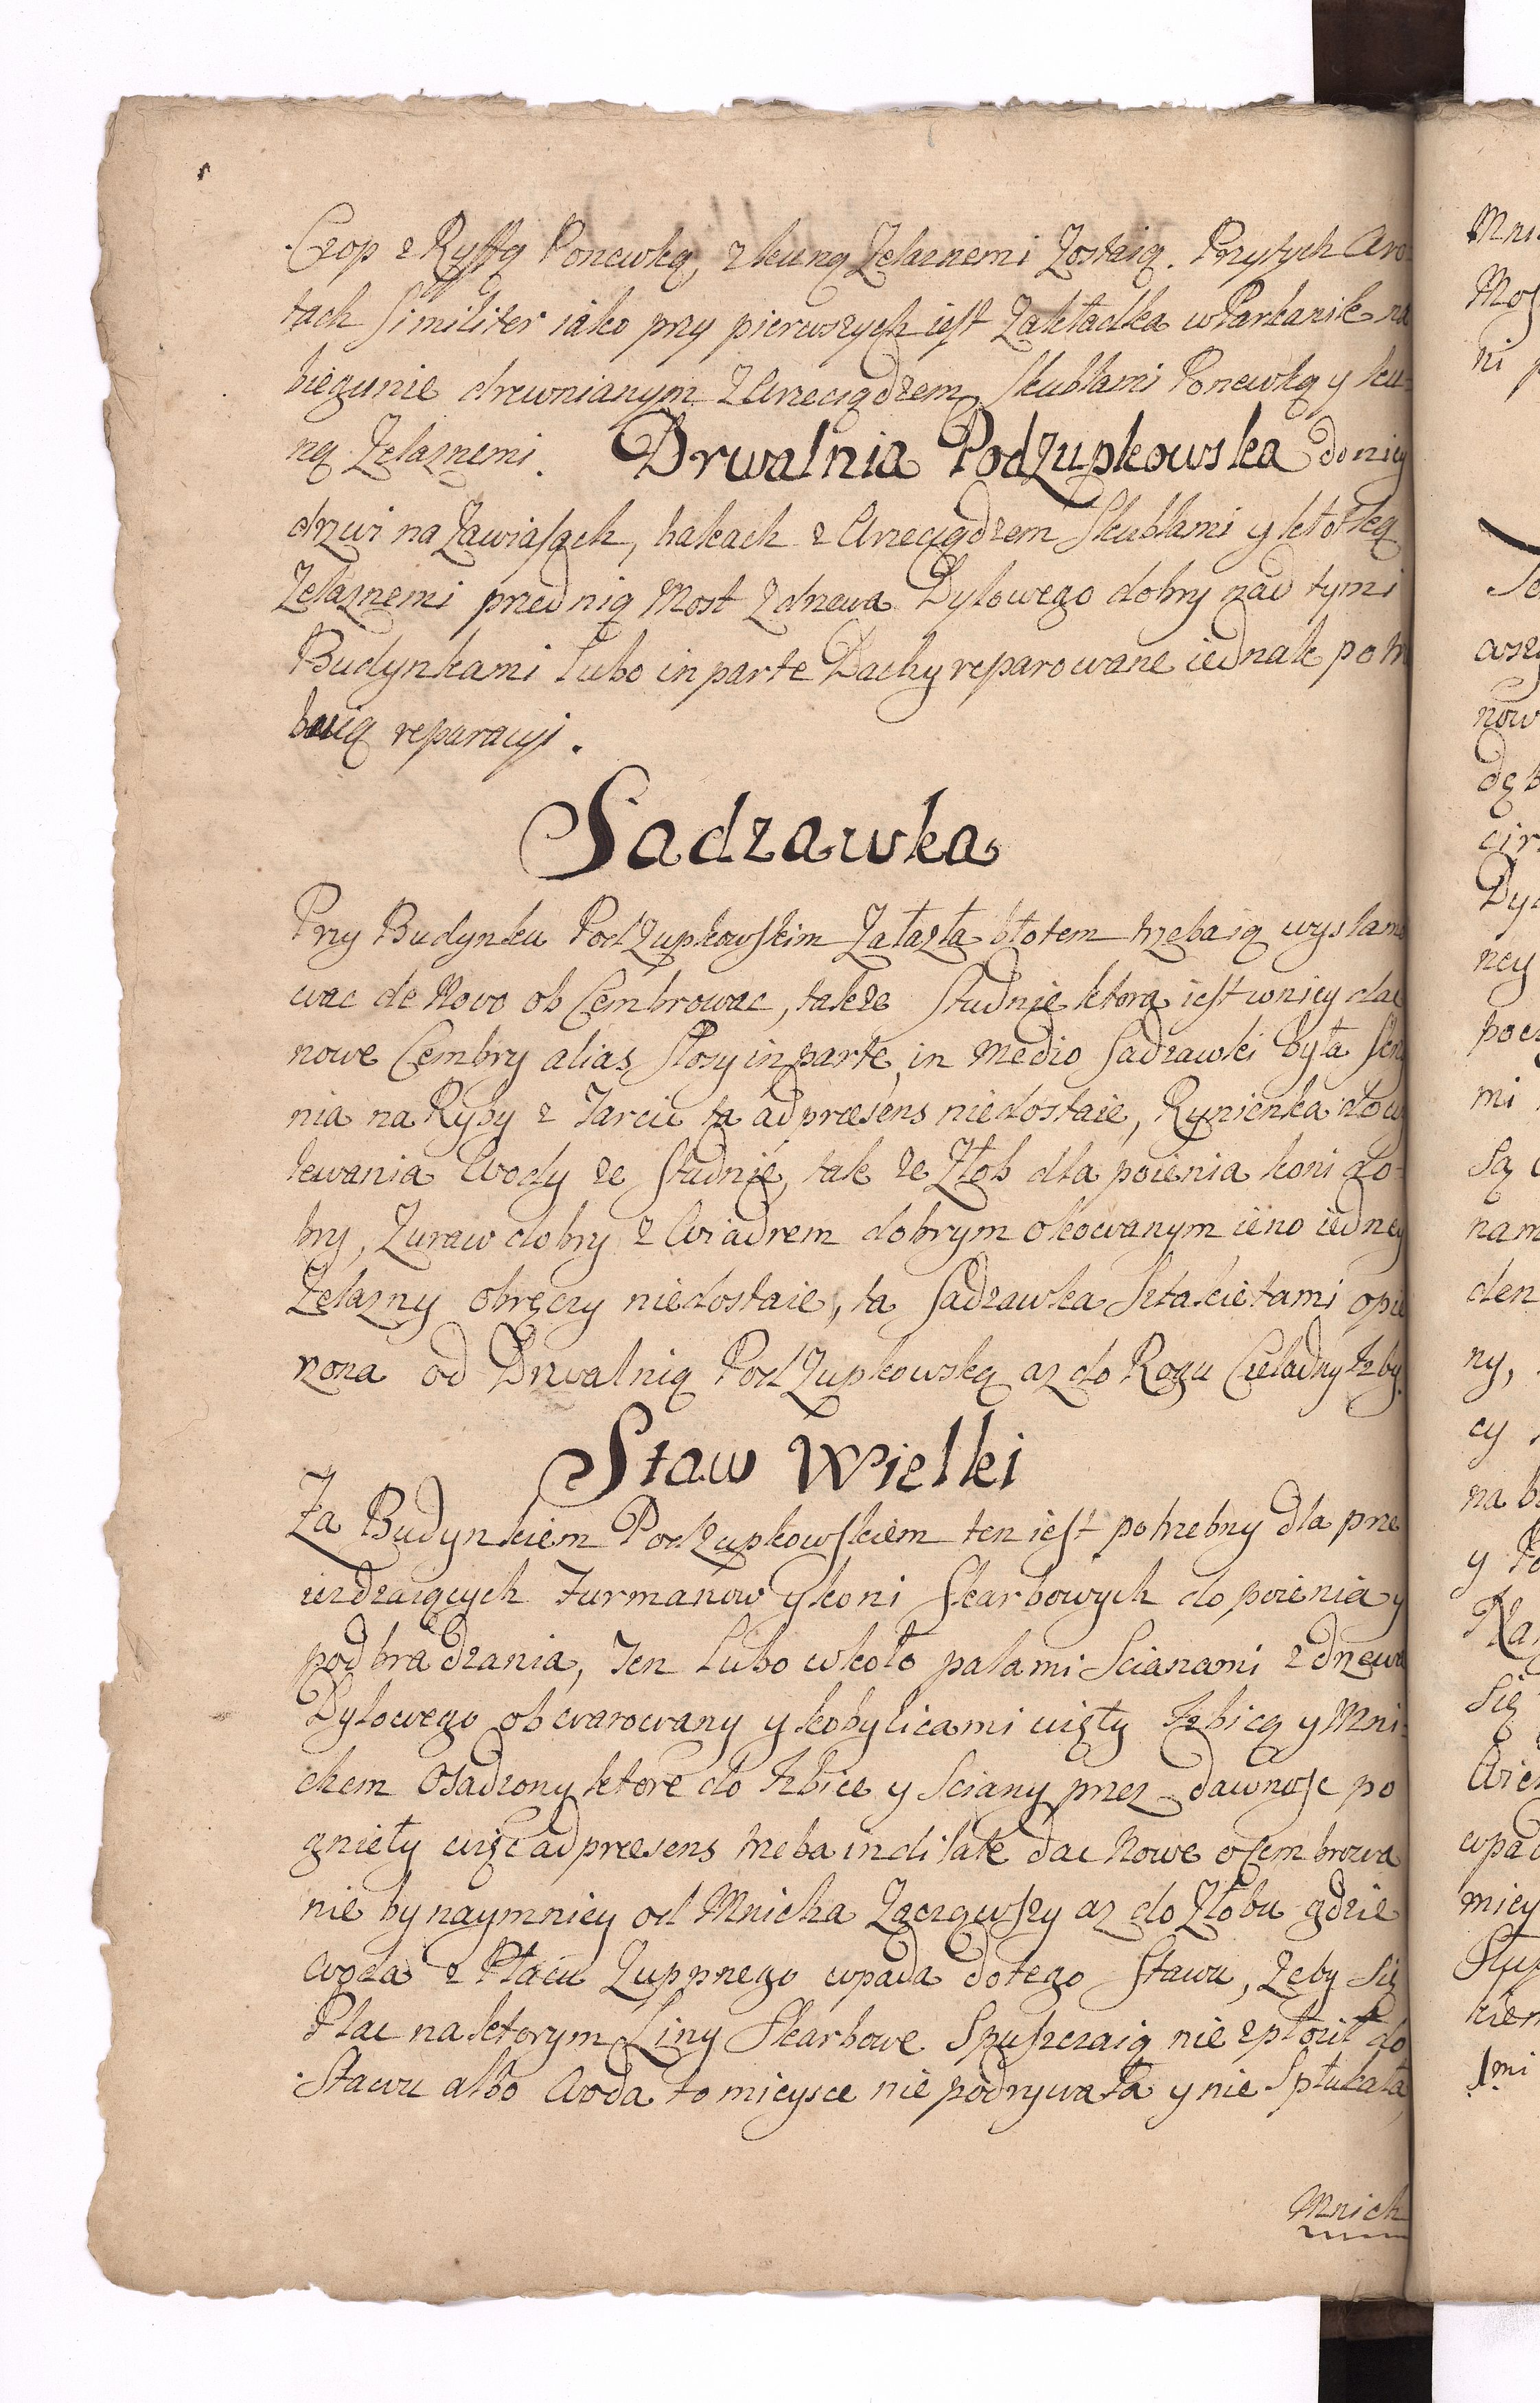 Czop z Ryffą Ponewką, z kuną Zelaznemi Zostaią. Przytych Wro-
tach similiter iako przy pierwszych iest Zakładka w Parkanik na
biegunie drewnianym z Wrzeciądzem, Skublami Ponewką y ku-
ną Zelaznemi. Drwalnia Podzupkowska do niey
drzwi na Zawiasach, hakach z Wrzeciądzem Skublami y kłotką
Zelaznemi przed nią Most z drzewa Dylowego dobry nad tymi
Budynkami lubo in parte Dachy reparowane iednak potrz
buią reparacyi.
Sadzawka
Przy Budynku Podzupkowskim Załazła błotem trzeba ią wyslamo
wac de Novo ob Cembrowac, takze Studnię ktora iest w niey dac
nowe Cembry alias Stosy in parte, in medio Sadzawki była Skrzy
nia na Ryby z Tarcic ta ad præsens niedostaie, Rynienka do w
lewania Wody ze Studnie, tak ze Złob dla poienia koni do-
bry, Zuraw dobry z Wiadrem dobrym okowanym ieno iedney
Zelazny obręczy niedostaie, ta Sadzawka Sztakietami opie
rzona od Drwalnią Podzupkowską az do Rogu Czeladny Izby
Staw Wielki
Za Budynkiem Podzupkowskiem ten iest potrzebny dla prze
iezdzaiących Furmanow y koni Skarbowych do poienia y
pod bradzania, Ten lubo wkoło palami Scianami z drzewa
Dylowego obwarowany y kobylicami uięty Izbicą y Mni-
chem Osadzony ktore do Izbice y Sciany przez dawnosc po
gnieły więc ad præsens trzeba indilate dac Nowe ocembrowa
nie bynaymniey od Mnicha Zacząwszy az do Złobu gdzie
Woda z Placu Zuppnego wpada do tego Stawu, Zeby Się
Plac na ktorym Liny Skarbowe Spuszczaią nie zpłoził do
Stawu albo Woda to mieysce nie podrywała y nie Spłukała
Mnich